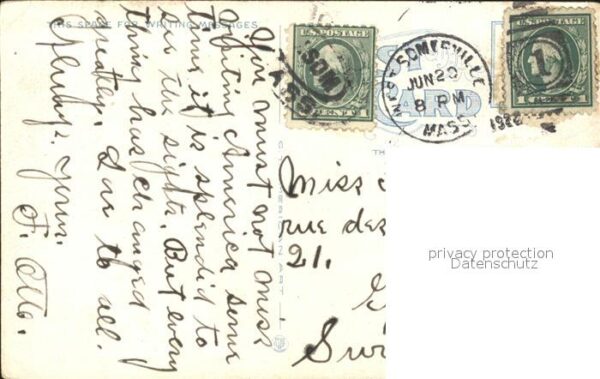 THIS SPACE FOR WRITING MESSAGES
You must not miss
visiting America some
time it is splendid to
see the sights. But every
thing has changed
greatly. Love to all.
Always yours.
F. Otto.
U.S. POSTAGE
CENT
SOM
MASS
WEST SOMERVILLE
JUN 20
8 PM
MASS.
U.S. POSTAGE
1
CARD
Miss
rue des
21.
privacy protection
Datenschutz